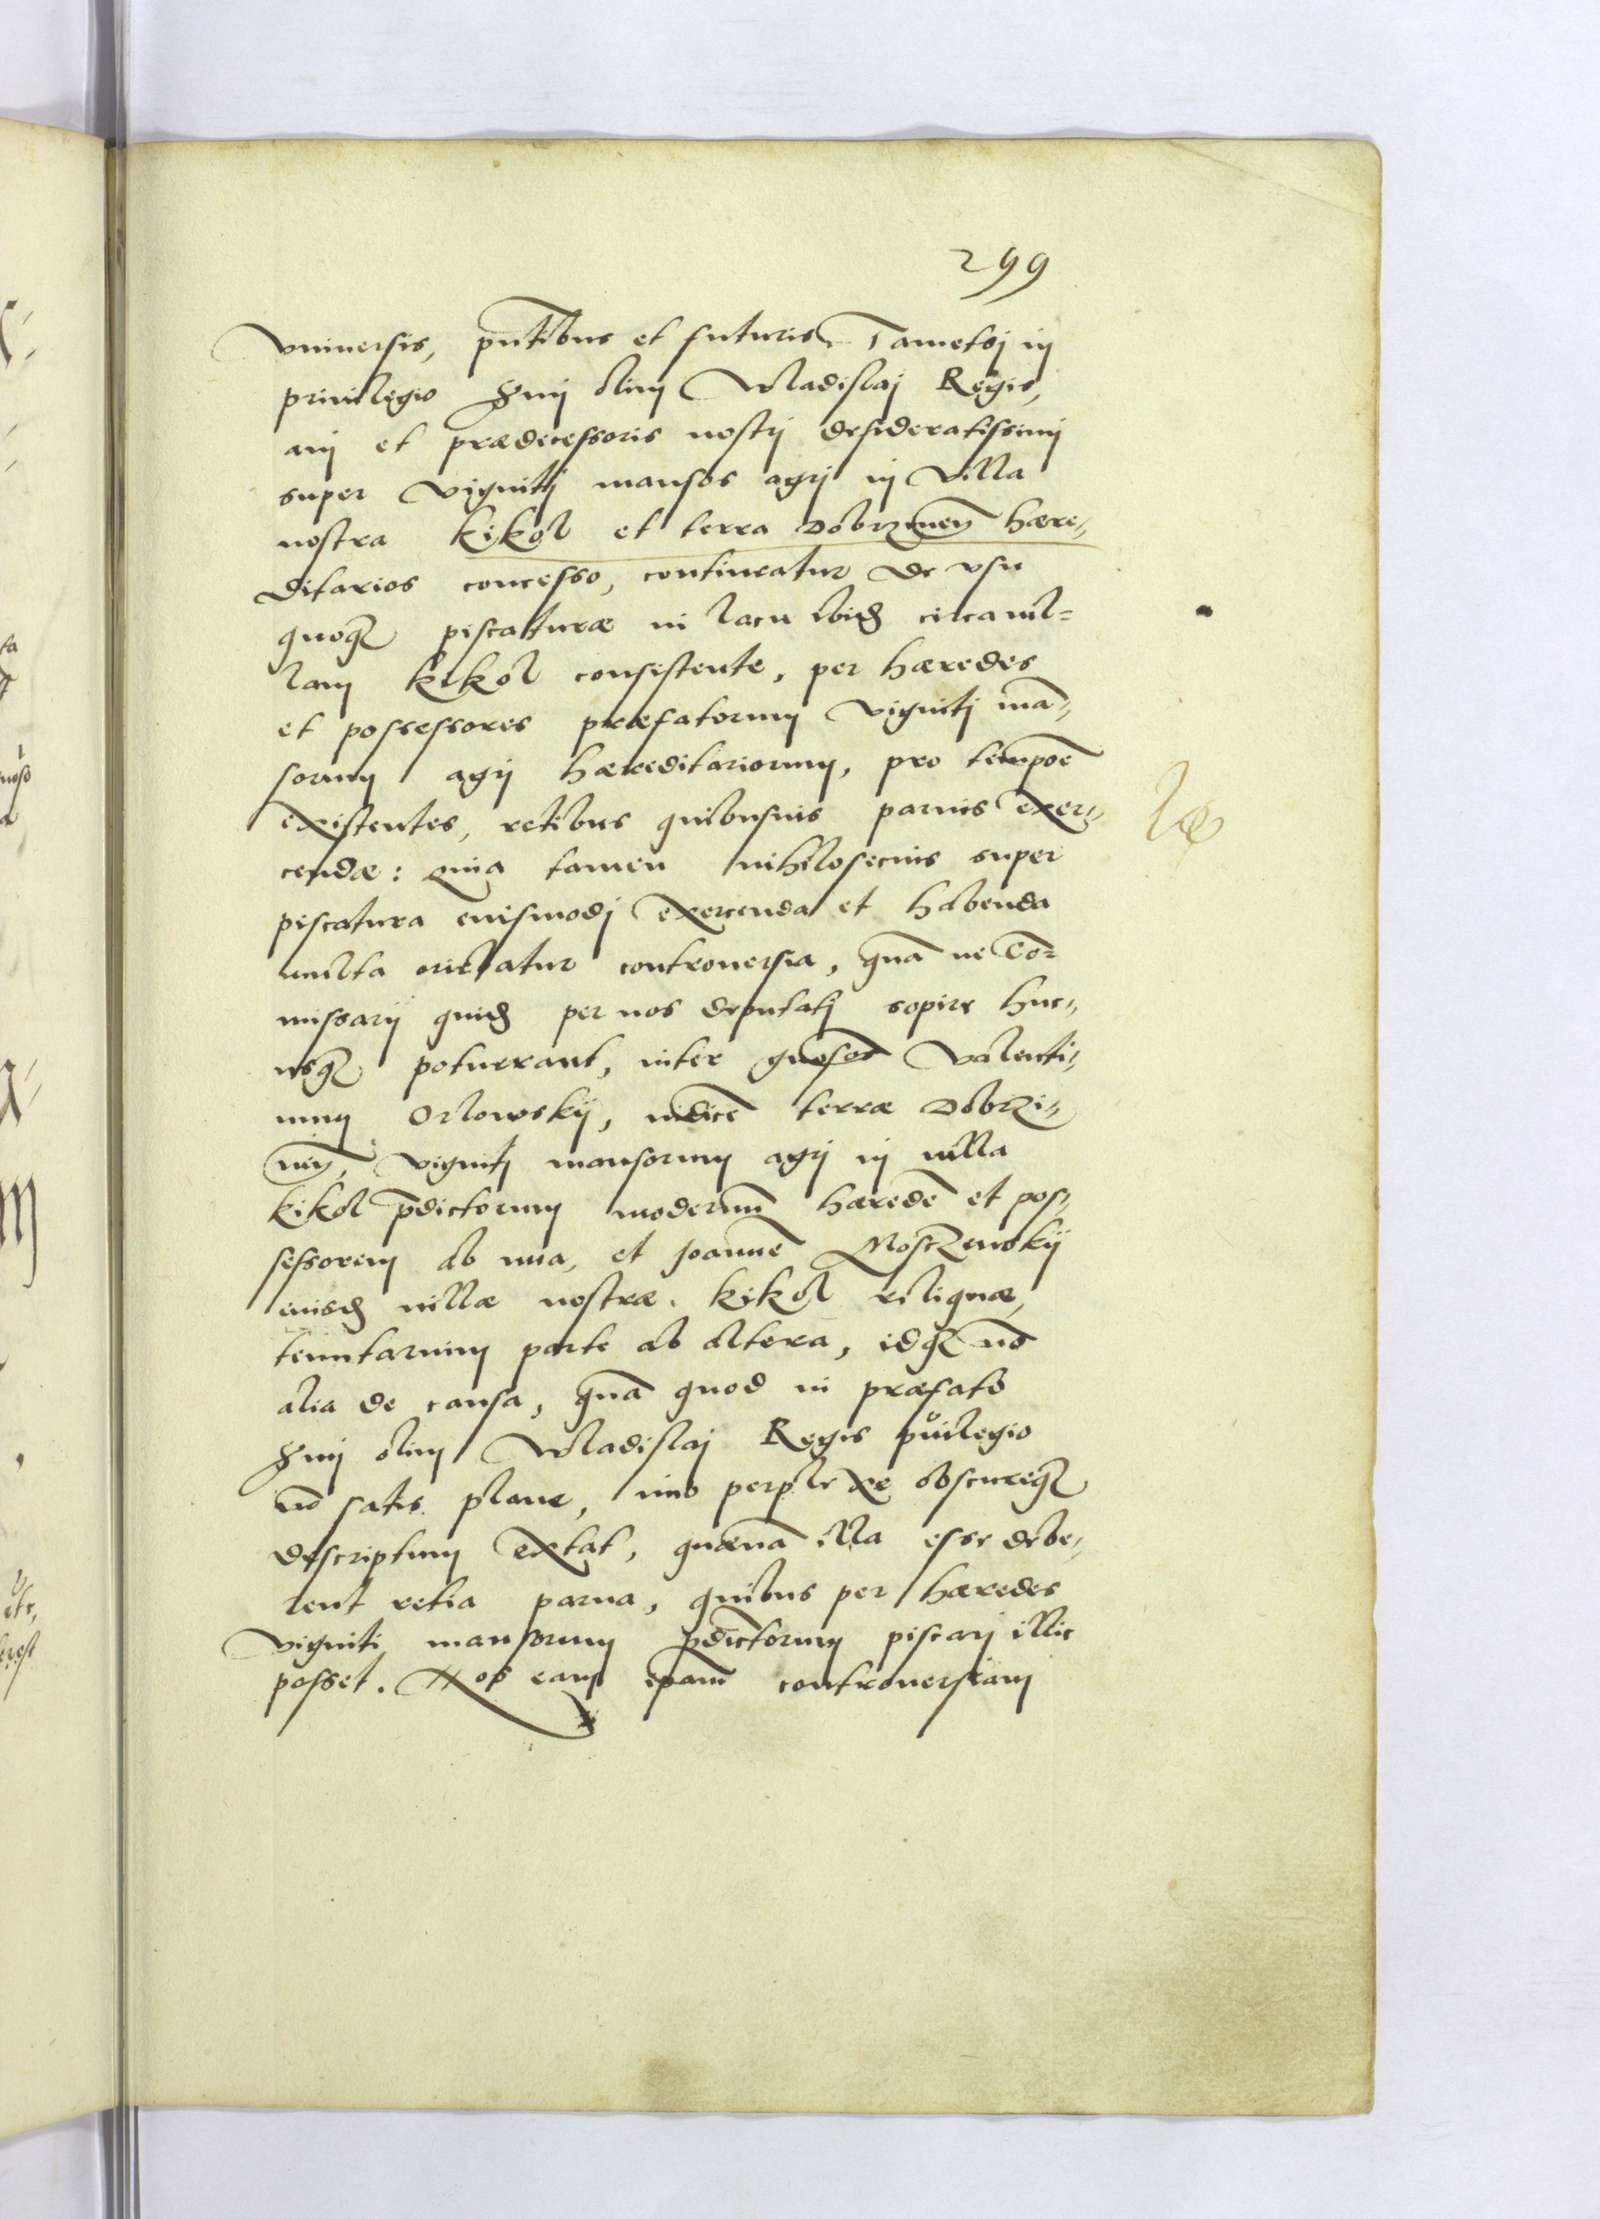 299
Vniuersis, pntibus et futuris. Tametsi in
priuilegio Srmi olim Wladislaj Regis,
aui et prædecessoris nostrj desideratissimi
super viginti mansos agrj in villa
nostra Kikol et terra Dobrzinen hære-
ditarios concesso, contineatur de vsu
quoq piscaturæ in lacu ibid circa uil-
lam Kikol consistente, per hæredes
et possessores præfatorum viginti man-
sorum agrj hæreditariorum, pro tempore
existentes, retibus quibusuis paruis exer-
cendæ: quia tamen nihilosecius super
piscatura euismodj exercenda et habenda
multa oriebatur controuersia, qua ne Com-
missarij quid per nos deputatj sopire huc-
usq potuerant, inter gnosos Valenti-
num Orlowskij, iudice terræ Dobrzi-
nen, viginti mansorum agrj in uilla
Kikol pdictorum modernu hærede et pos-
sessorem ab una, et Joanne Mosczenskij
euisd uillæ nostræ Kikol reliquæ,
tenutarium parte ab altera, idq no
alia de causa, qua quod in præfato
Srmi olim Wladislaj Regis puilegio
no satis plane, imo perplexe obscureq
descriptum extat, quæna illa esse debe-
rent retia parua, quibus per hæredes
viginti mansorum pdictorum piscarj illic
posset. Nos eam ipsam controuersiam